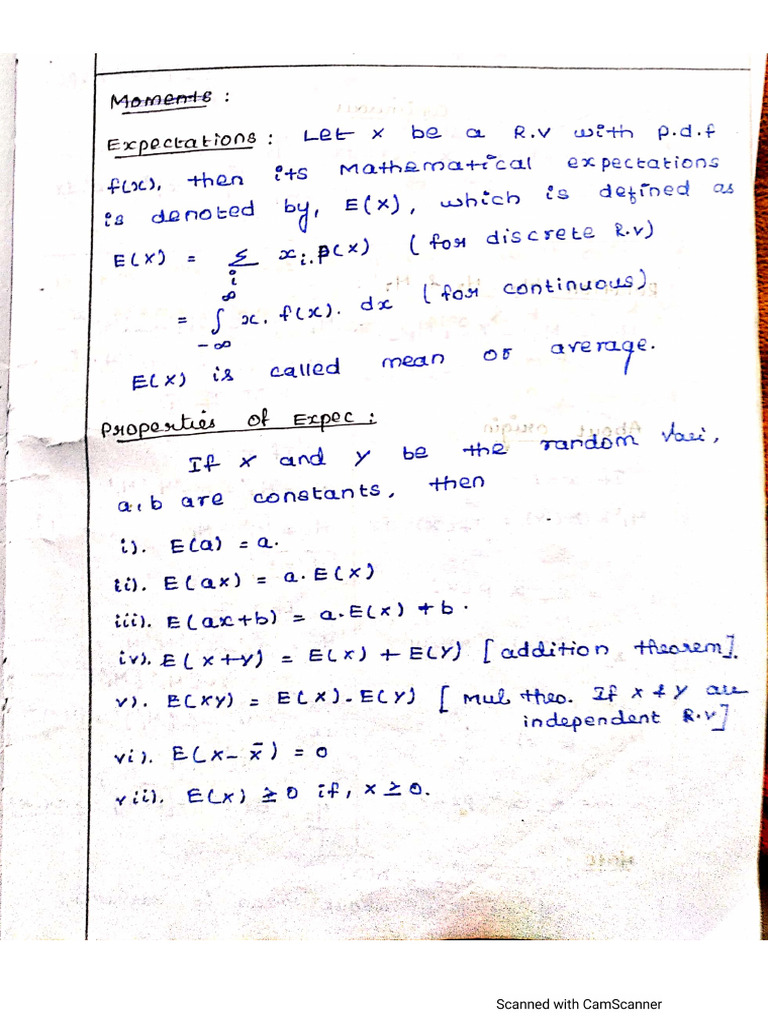 Moments :
Expectations : Let x be a R.v with p.d.f
f(x), then its Mathematical expectations
is denoted by, E(X), which is defined as
E(X) = Σ xi.P(x) ( for discrete R.v)
i
∞
= ∫ x. f(x). dx ( for continuous)
-∞
E(X) is called mean or average.
Properties of Expec :
If x and y be the random Vari,
a,b are constants, then
i). E(a) = a.
ii). E(ax) = a.E(X)
iii). E(ax+b) = a.E(X) + b.
iv). E(x+y) = E(X) + E(Y) [addition theorem].
v). E(XY) = E(X).E(Y) [Mul theo. If x & y are
independent R.v]
vi). E(x- x̄) = 0
vii). E(X) ≥ 0 if, x ≥ 0.
Scanned with CamScanner